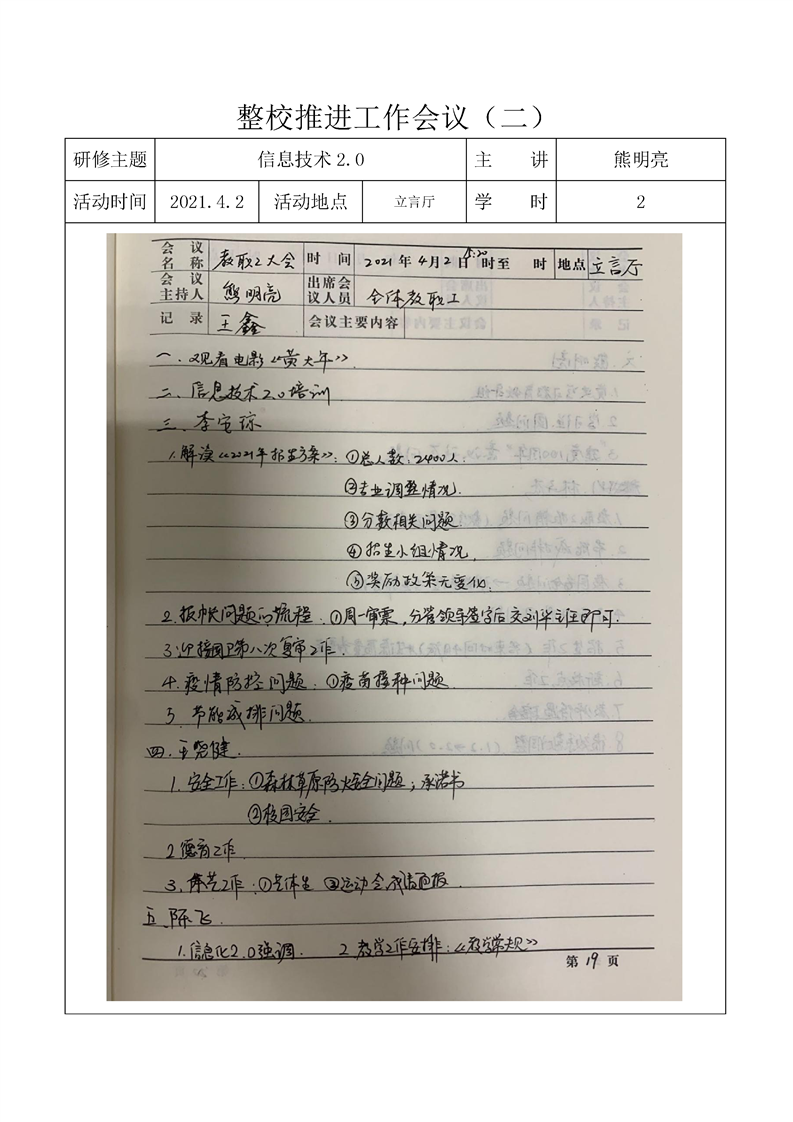 整校推进工作会议（二）
研修主题 信息技术 2.0 主 讲 熊明亮
活动时间 2021.4.2 活动地点 立言厅 学 时 2
会 议 名 称 教职工大会 时 间 2021年4月2日15:20时至 时 地点 立言厅
会 议 主持人 熊明亮 出席会议人员 全体教职工
记 录 王鑫 会议主要内容
一.观看电影《黄大年》.
二、信息技术2.0培训
三、李宝琼
1.解读《2021年招生方案》：①总人数：2400人.
②专业调整情况.
③分数相关问题
④招生小组情况,
⑤奖励政策无变化.
2.报帐问题的流程.①周一审票,分管领导签字后交刘华主任即可.
3.迎接国卫第八次复审工作.
4.疫情防控问题：①疫苗接种问题.
5.节能减排问题.
四.王尧健.
1.安全工作：①森林草原防火安全问题；承诺书
②校园安全.
2.德育工作.
3.体艺工作：①艺体生 ②运动会成绩画报.
五.陈飞.
1.信息化2.0强调. 2.教学工作安排：《教学常规》
第 19 页